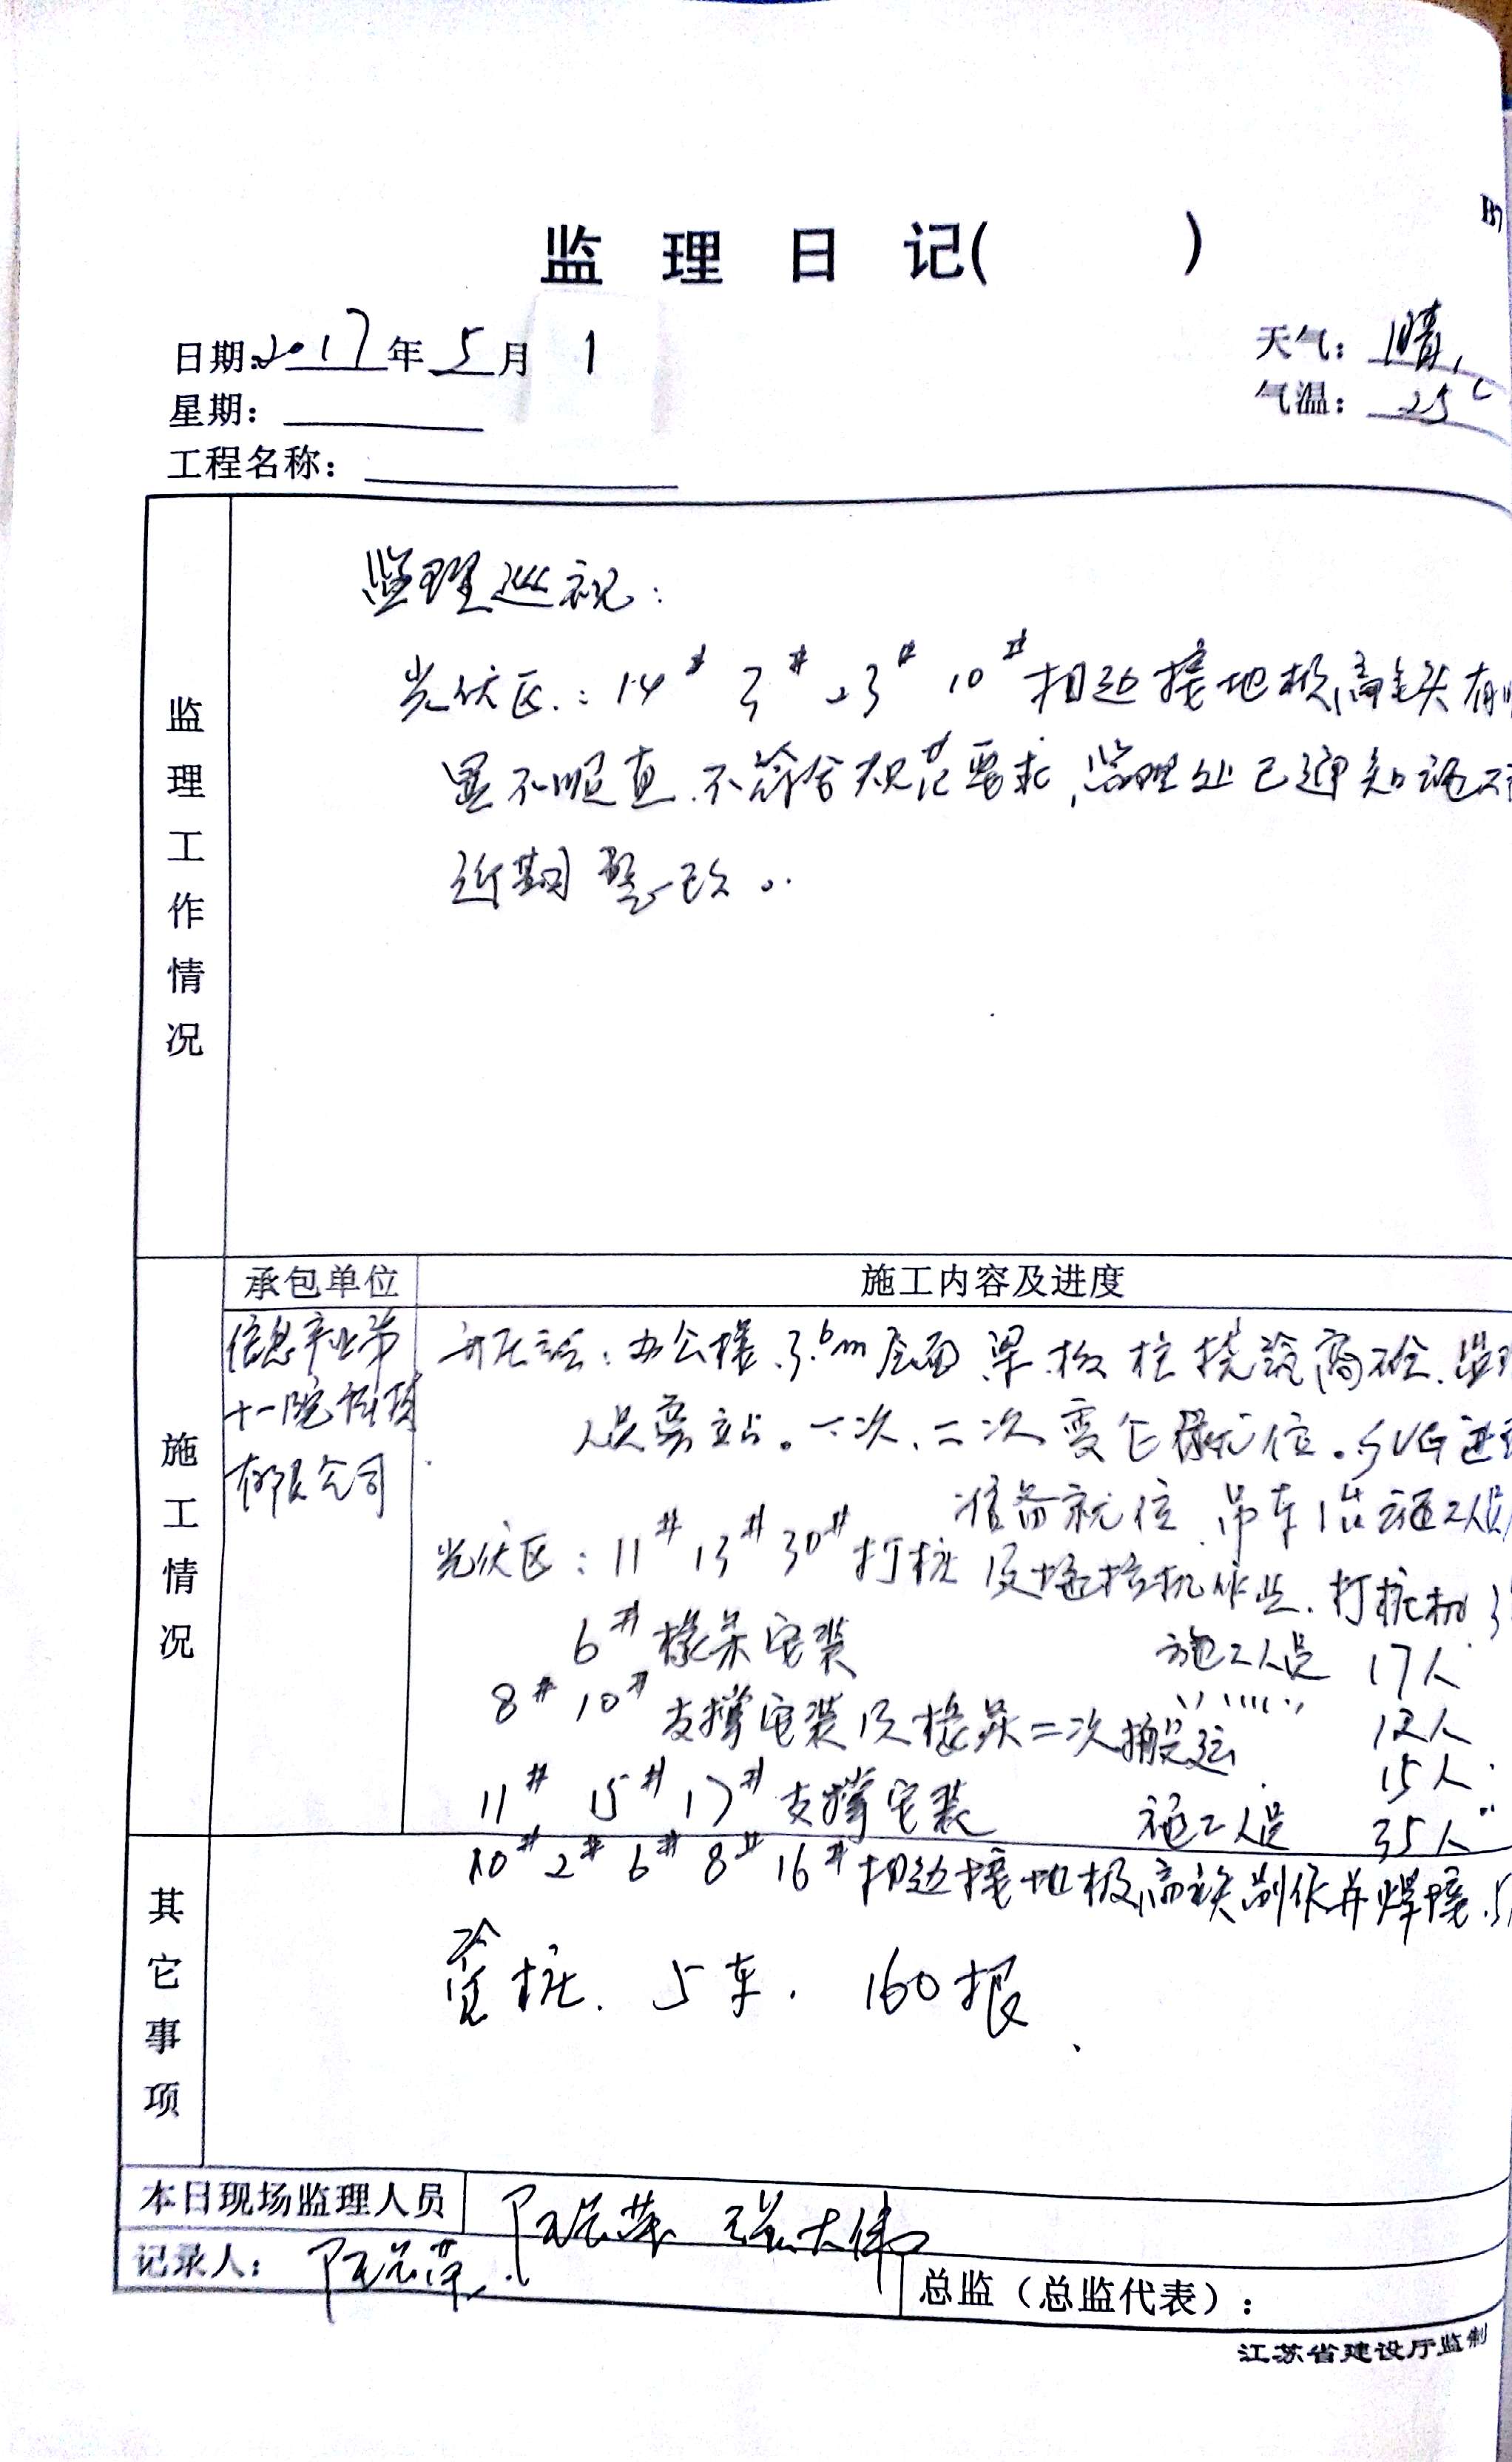 B7
监理日记(          )
日期:2017年5月1
天气:晴,
气温:25℃
星期:
工程名称:
监理工作情况
监理巡视:
光伏区:14# 3# 23# 10#相边接地极扁铁有明
显不顺直.不符合规范要求,监理处已通知施工
近期整改。
施工情况
承包单位
施工内容及进度
信息产业第
十一院
有限公司
升压站:办公楼.3.6m层面梁.板柱浇筑商砼.监理
人员旁站。一次、二次变仓就位。SVG进
准备就位 吊车1台 施工人员
光伏区:11# 13# 30#打桩及挖机作业.打桩机3
6#檩条安装 施工人员 17人
8# 10#支撑安装及檩条二次搬运 12人
15人
11# 15# 17#支撑安装 施工人员 35人
其它事项
10# 2# 6# 8# 16#相边接地极扁铁制作并焊接.5
管桩.5车.160根
本日现场监理人员
大伟
记录人:
总监(总监代表):
江苏省建设厅监制